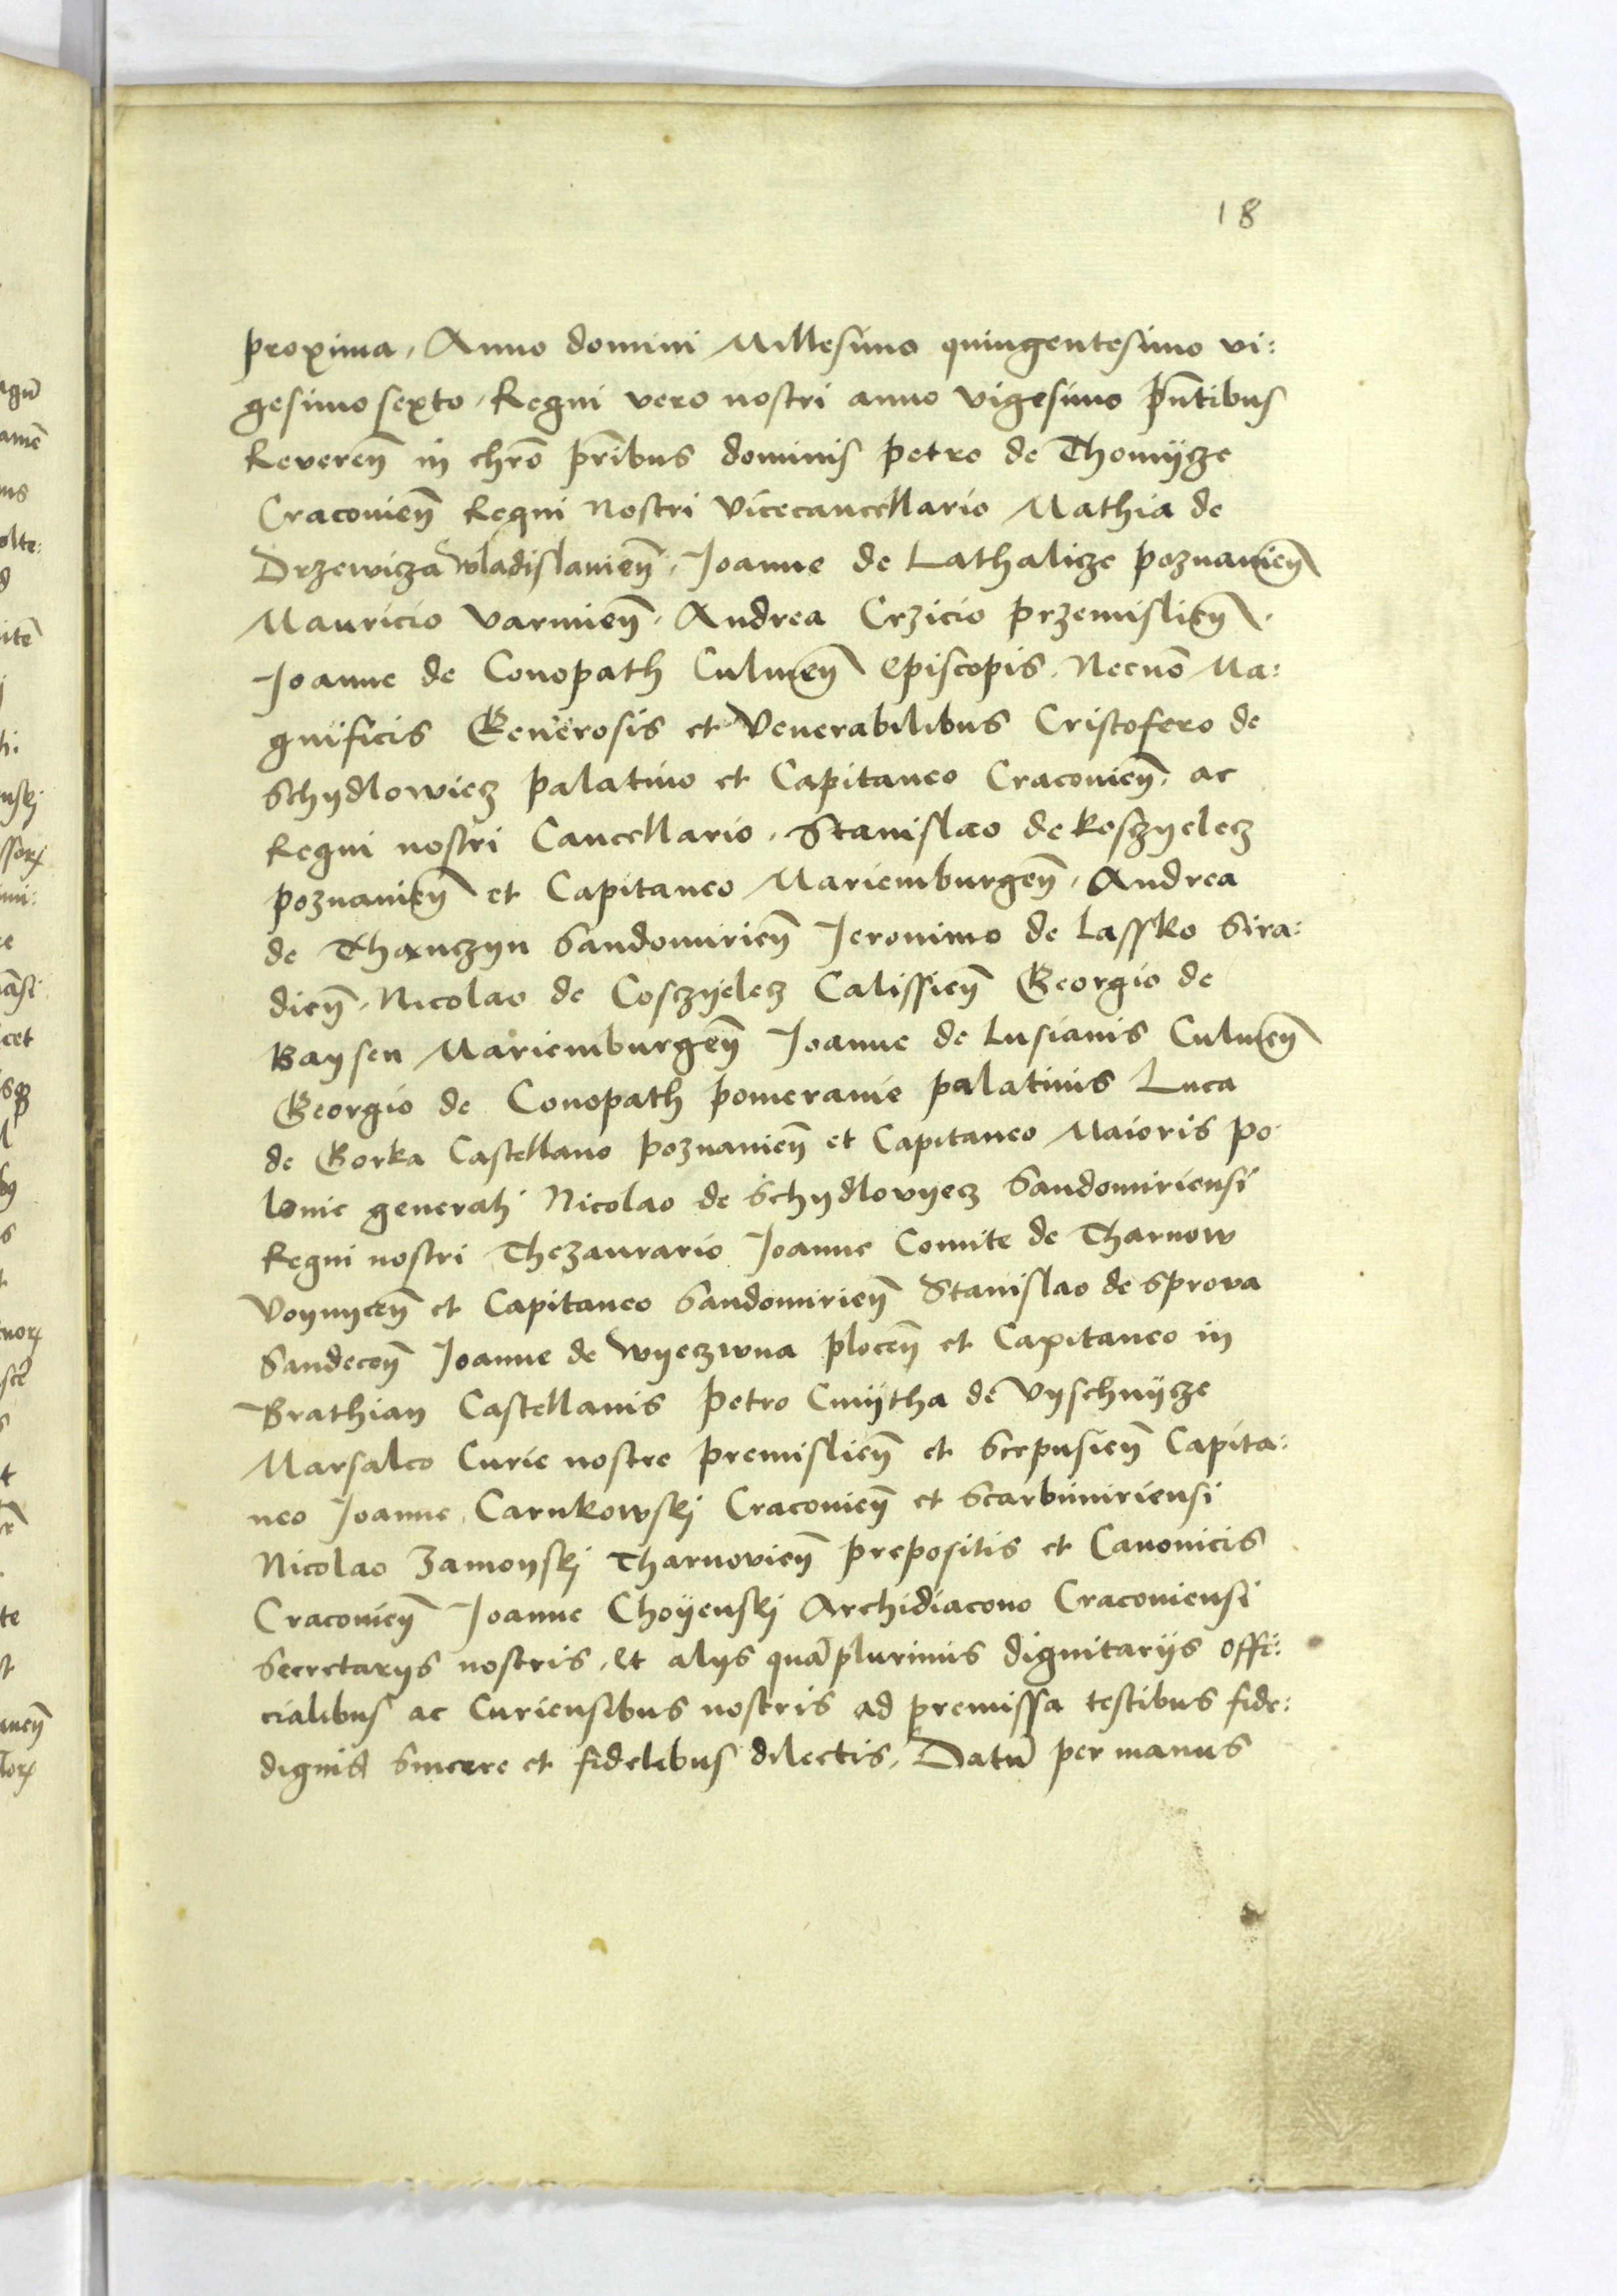 18
proxima, Anno domini Millesimo quingentesimo vi:
gesimo sexto, Regni vero nostri anno vigesimo pn̄tibus
Reveren̄ in chrō pr̄ibus dominis Petro de Thomÿcze
Cracovien̄ Regni Nostri Vicecancellario Mathia de
Drzewicza Wladislavien̄, Joanne de Lathalicze poznanien̄
Mauricio Varmien̄, Andrea Crzicio Przemislien̄.
Joanne de Conopath Culmen̄ Episcopis, Necnō Ma:
gnificis Generosis et Venerabilibus Cristofero de
Schydlowiecz Palatino et Capitaneo Cracovien̄, ac
Regni nostri Cancellario, Stanislao de Kosczyelecz
Poznanien̄ et Capitaneo Mariemburgen̄, Andrea
de Thanczyn Sandomirien̄ Jeronimo de Lassko Sira:
dien̄, Nicolao de Cosczÿelecz Calissien̄ Georgio de
Baysen Mariemburgen̄ Joanne de Lusianis Culmen̄
Georgio de Conopath Pomeranie Palatinis Luca
de Gorka Castellano Poznanien̄ et Capitaneo Maioris Po
lonie generali Nicolao de Schydlovyecz Sandomiriensi
Regni nostri Thezaurario Joanne Comite de Tharnow
Voynycen̄ et Capitaneo Sandomirien̄ Stanislao de Sprova
Sandecen̄ Joanne de Wyeczwna Plocen̄ et Capitaneo in
Brathian Castellanis Petro Cmÿtha de Vyschnÿcze
Marsalco Curie nostre Premislien̄ et Scepusien̄ Capita:
neo Joanne, Carnkowskj Cracovien̄ et Scarbimiriensi
Nicolao Zamoyskj Tharnovien̄ prepositis et Canonicis
Cracovien̄ Joanne Choÿenskj Archidiacono Cracoviensi
Secretarys nostris, Et alys quāplurimis dignitariis offi:
cialibus ac Curiensibus nostris ad premissa testibus fide:
dignis sincere et fidelibus dilectis, Datū per manus